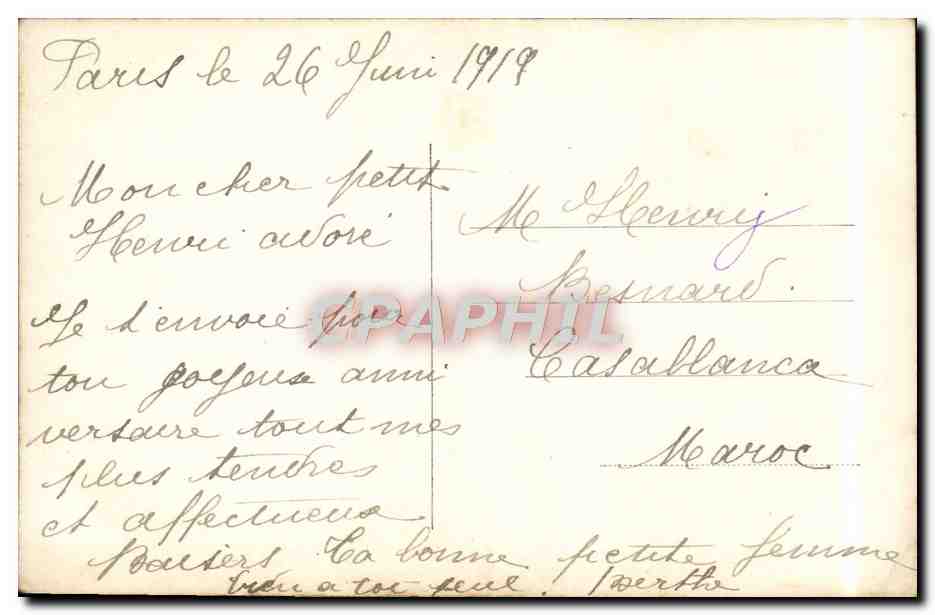 Paris le 26 Juni 1919
Mon cher petit
Henri adoré
Je t'envoie pour
ton joyeux anni
versaire tout mes
plus tendres
et affectueux
Baisers Ta bonne petite femme
bien a toi seul. Berthe
Mr Henri
Besnard.
Casablanca
Maroc
CPAPHIL